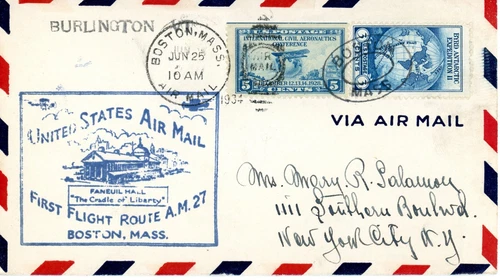 BURLINGTON
BOSTON, MASS.
JUN 25
10 AM
AIR MAIL
1934
U.S. POSTAGE
INTERNATIONAL CIVIL AERONAUTICS
CONFERENCE
DECEMBER 12,13,14, 1928
5 CENTS 5
AIR
MAIL
BOSTON
MASS.
BYRD ANTARCTIC
EXPEDITION II
3
VIA AIR MAIL
UNITED STATES AIR MAIL
FANEUIL HALL
"The Cradle of Liberty"
FIRST FLIGHT ROUTE A.M. 27
BOSTON, MASS.
Mrs. Mary R.
1111 Southern Boulvd.
New York City N.Y.